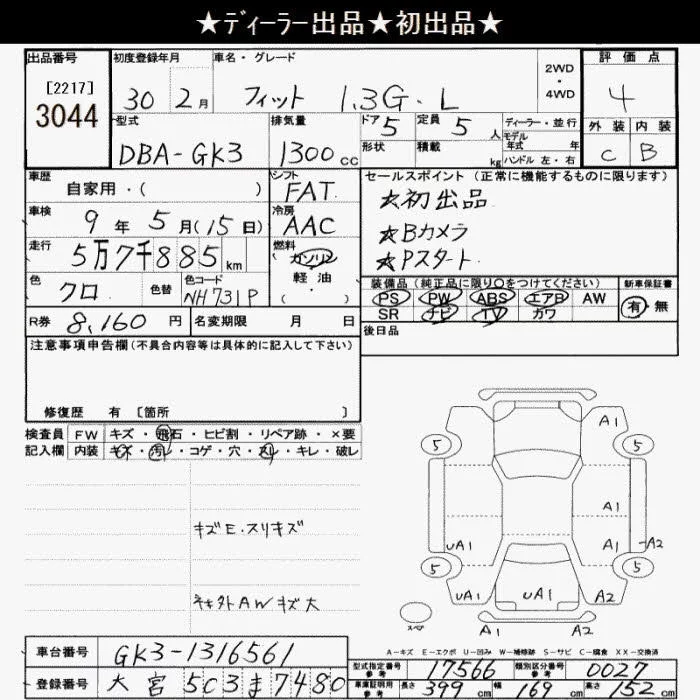 ★ディーラー出品★初出品★
出品番号 初度登録年月 車名・グレード 評価点
[2217]
3044
30 2月 フィット 1.3G・L
2WD
・
4WD
4
型式 排気量 ドア 5 定員 5 人 ディーラー・並行
モデル
年式 年
外装 内装
DBA-GK3 1300cc 形状 積載 kg ハンドル 左・右 C B
車歴 自家用・( ) シフト FAT
セールスポイント (正常に機能するものに限ります)
★初出品
★Bカメラ
★Pスタート
車検 9年 5月(15日) 冷房 AAC
走行 5万7千885km 燃料 (ガソリン
軽油・
( )
色 クロ 色替 色コード NH731P
装備品 (純正品に限り○をつけてください) 新車保証書
PS PW ABS エアB AW 有・無
SR ナビ TV カワ
R券 8,160円 名変期限 月 日
後日品
注意事項申告欄(不具合内容等は具体的に記入して下さい)
修復歴 有 [箇所 ]
検査員 FW キズ・飛石・ヒビ割・リペア跡・×要
記入欄 内装 キズ・汚レ・コゲ・穴・スレ・キレ・破レ
キズE・スリキズ
外AWキズ大
A1
5 5
A1
UA1 A1 A2
5 5
UA1 UA1 A2
スペア
A1 A2
A-キズ E-エクボ U-凹み W-補修跡 S-サビ C-腐食 XX-交換済
車台番号 GK3-1316561
型式指定番号 参考 17566 類別区分番号 参考 0027
登録番号 大宮 503ま7480
車庫証明用 参考 長さ 399cm 幅 169cm 高さ 152cm